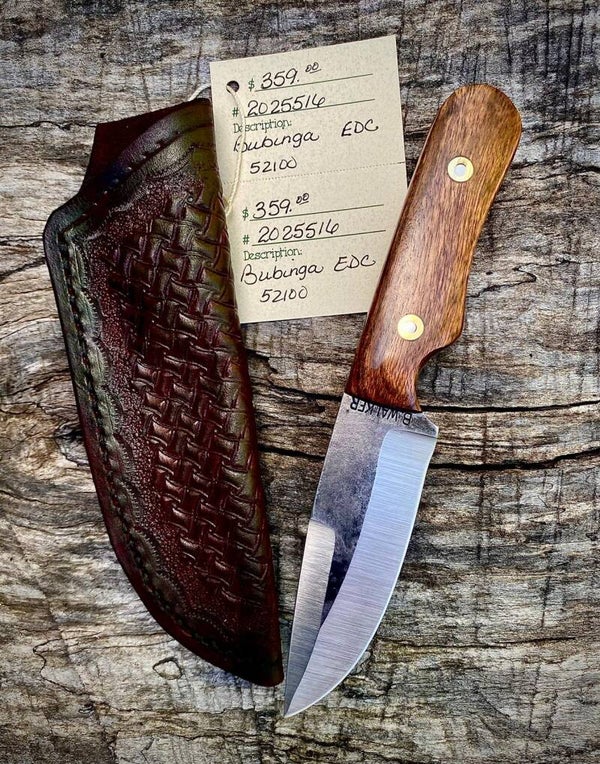 $ 359.00
# 2025516
Description:
Bubinga EDC
52100
$ 359.00
# 2025516
Description:
Bubinga EDC
52100
B·WALKER